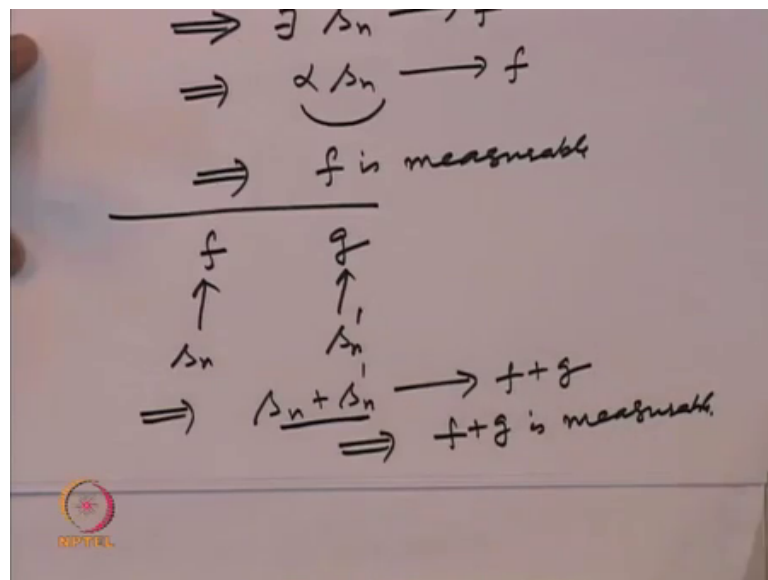 ⟹ ∃ sₙ ⟶ f
⟹ α sₙ ⟶ f
⟹ f is measurable
f g
↑ ↑
sₙ sₙ'
⟹ sₙ + sₙ' ⟶ f+g
⟹ f+g is measurable.
NPTEL